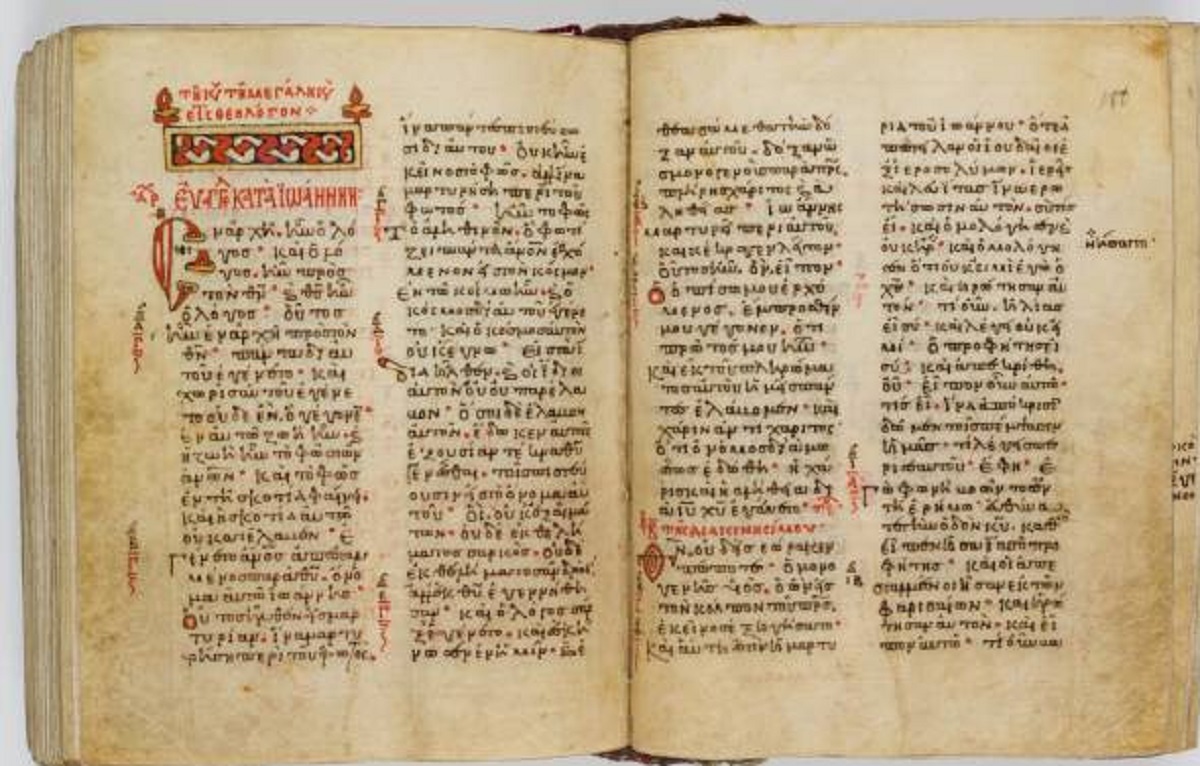 ΕΥΑΓ ΚΑΤΑ ΙΩΑΝΝΗΝ
Ἐν ἀρχῆ ἦν ὁ λό
γος· καὶ ὁ λό
γος ἦν πρὸς
τὸν θν· καὶ θς ἦν
ὁ λόγος· οὗτος
ἦν ἐν ἀρχῆ πρὸς τὸν
θν· πάντα δι αὐ
τοῦ ἐγένετο· καὶ
χωρὶς αὐτοῦ ἐγένε
το οὐδὲ ἕν. ὃ γέγονεν
ἐν αὐτῶ ζωὴ ἦν· καὶ
ἡ ζωὴ ἦν τὸ φῶς τῶν
ἀνων· καὶ τὸ φῶς
ἐν τῆ σκοτία φαίνει·
καὶ ἡ σκοτία αὐτὸ
οὐ κατέλαβεν· Ἐ
γένετο ἀνος ἀπεσταλ
μένος παρὰ θυ· ὄνο
μα αὐτῶ ἰωάννης·
Οὗτος ἦλθεν εἰς μαρ
τυρίαν· ἵνα μαρτυ
ρήση περὶ τοῦ φωτός.
ἵνα πάντες πιστεύσω
σι δι αὐτοῦ· οὐκ ἦν ἐ
κεῖνος τὸ φῶς. ἀλλ ἵνα
μαρτυρήση περὶ τοῦ
φωτός· ἦν τὸ φῶς
τὸ ἀληθινόν. ὃ φωτί
ζει πάντα ἀνον ἐρχό
μενον εἰς τὸν κόσμον·
Ἐν τῶ κόσμω ἦν· καὶ ὁ
κόσμος δι αὐτοῦ ἐγένε
το· καὶ ὁ κόσμος αὐτὸν
οὐκ ἔγνω· Εἰς τὰ ἴ
δια ἦλθεν. καὶ οἱ ἴδιοι
αὐτὸν οὐ παρέλα
βον· ὅσοι δὲ ἔλαβον
αὐτόν. ἔδωκεν αὐτοῖς
ἐξουσίαν τέκνα θυ
γενέσθαι. τοῖς πιστεύ
ουσιν εἰς τὸ ὄνομα αὐ
τοῦ· οἳ οὐκ ἐξ αἱμά
των· οὐδὲ ἐκ θελή
ματος σαρκός· οὐδὲ
ἐκ θελήματος ἀνδρός.
ἀλλ ἐκ θυ ἐγεννήθη
σαν· καὶ ὁ λόγος σὰρ
ξ ἐγένετο. καὶ ἐσκή
νωσεν ἐν ἡμῖν· καὶ ἐ
θεασάμεθα τὴν δό
ξαν αὐτοῦ. δόξαν ὡς
μονογενοῦς παρὰ πρς.
πλήρης χάριτος καὶ ἀ
ληθείας· ἰωάννης
μαρτυρεῖ περὶ αὐτοῦ.
καὶ κέκραγε λέγων·
οὗτος ἦν. ὃν εἶπον·
ὁ ὀπίσω μου ἐρχό
μενος. ἔμπροσθέν
μου γέγονεν. ὅτι
πρῶτός μου ἦν·
Καὶ ἐκ τοῦ πληρώμα
τος αὐτοῦ ἡμεῖς πάν
τες ἐλάβομεν· καὶ
χάριν ἀντὶ χάριτος·
ὅτι ὁ νόμος διὰ μω
σέως ἐδόθη· ἡ χά
ρις καὶ ἡ ἀλήθεια δι
α ιυ χυ ἐγένετο·
Θν οὐδεὶς ἑώρακεν
πώποτε· ὁ μονο
γενὴς υς. ὁ ὢν εἰς
τὸν κόλπον τοῦ πρς.
ἐκεῖνος ἐξηγήσατο·
Καὶ αὕτη ἐστὶν ἡ μαρτυ
ρία τοῦ ἰωάννου· ὅτε ἀ
πέστειλαν οἱ ἰουδαῖοι ἐ
ξ ἱεροσολύμων. ἱερεῖς
καὶ λευΐτας ἵνα ἐρω
τήσωσιν αὐτόν. σὺ τίς
εἶ· καὶ ὡμολόγησεν
καὶ ὡμολόγησ
εν ὅτι οὐκ εἰμὶ ἐγὼ ὁ
χς· καὶ ἠρώτησαν αὐ
τόν· τί οὖν. ἠλίας
εἶ σύ· καὶ λέγει οὐκ εἰ
μί· ὁ προφήτης εἶ
σύ· καὶ ἀπεκρίθη.
οὔ· εἶπον οὖν αὐτῶ·
τίς εἶ. ἵνα ἀπόκρισιν
δῶμεν τοῖς πέμψασιν
ἡμᾶς· τί λέγεις πε
ρὶ σεαυτοῦ· ἔφη· ἐ
γὼ φωνὴ βοῶντος ἐν
τῆ ἐρήμω· εὐθύνατε
τὴν ὁδὸν κυ. καθὼς
εἶπεν ἡσαΐας ὁ προ
φήτης· καὶ οἱ ἀπε
σταλμένοι ἦσαν ἐκ τῶν
φαρισαίων· καὶ ἠρώ
τησαν αὐτόν. καὶ εἶ
πον αὐτῶ· τί οὖν βα